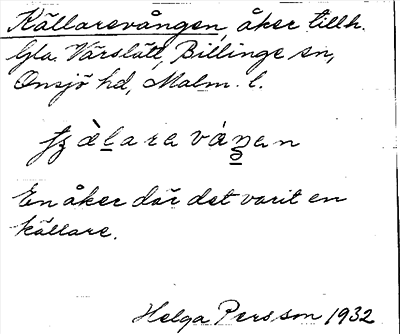 Källarevången, åker tillh.
Gla. Värslätt, Billinge sn,
Onsjö hd, Malm. l.
En åker där det varit en
källare.
Helga Persson 1932